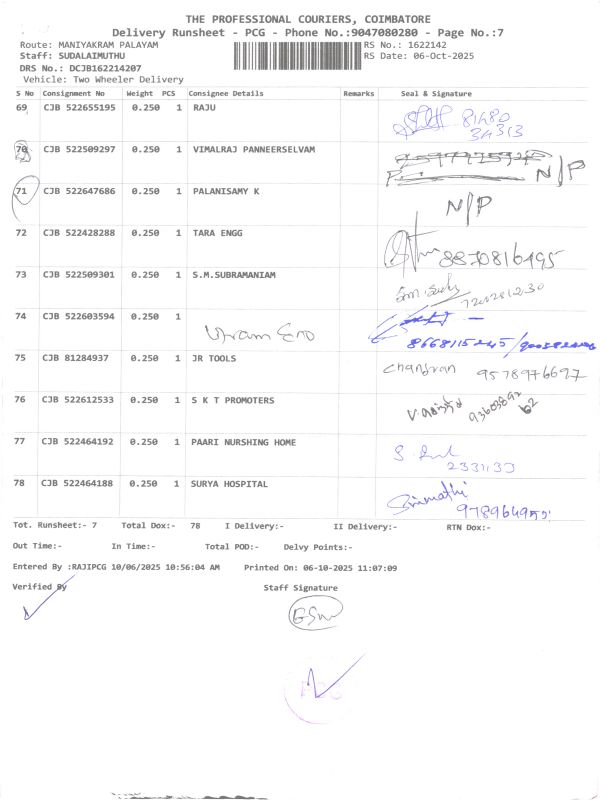 THE PROFESSIONAL COURIERS, COIMBATORE
Delivery Runsheet - PCG - Phone No.:9047080280 - Page No.:7
Route: MANIYAKRAM PALAYAM RS No.: 1622142
Staff: SUDALAIMUTHU RS Date: 06-Oct-2025
DRS No.: DCJB162214207
Vehicle: Two Wheeler Delivery
S No Consignment No Weight PCS Consignee Details Remarks Seal & Signature
69 CJB 522655195 0.250 1 RAJU 81480
34313
70 CJB 522509297 0.250 1 VIMALRAJ PANNEERSELVAM N/P
71 CJB 522647686 0.250 1 PALANISAMY K N/P
72 CJB 522428288 0.250 1 TARA ENGG 8870816495
73 CJB 522509301 0.250 1 S.M.SUBRAMANIAM
74 CJB 522603594 0.250 1
75 CJB 81284937 0.250 1 JR TOOLS Chandran 9578976697
76 CJB 522612533 0.250 1 S K T PROMOTERS
77 CJB 522464192 0.250 1 PAARI NURSHING HOME 2331133
78 CJB 522464188 0.250 1 SURYA HOSPITAL Srimathi
Tot. Runsheet:- 7 Total Dox:- 78 I Delivery:- II Delivery:- RTN Dox:-
Out Time:- In Time:- Total POD:- Delvy Points:-
Entered By :RAJIPCG 10/06/2025 10:56:04 AM Printed On: 06-10-2025 11:07:09
Verified By Staff Signature